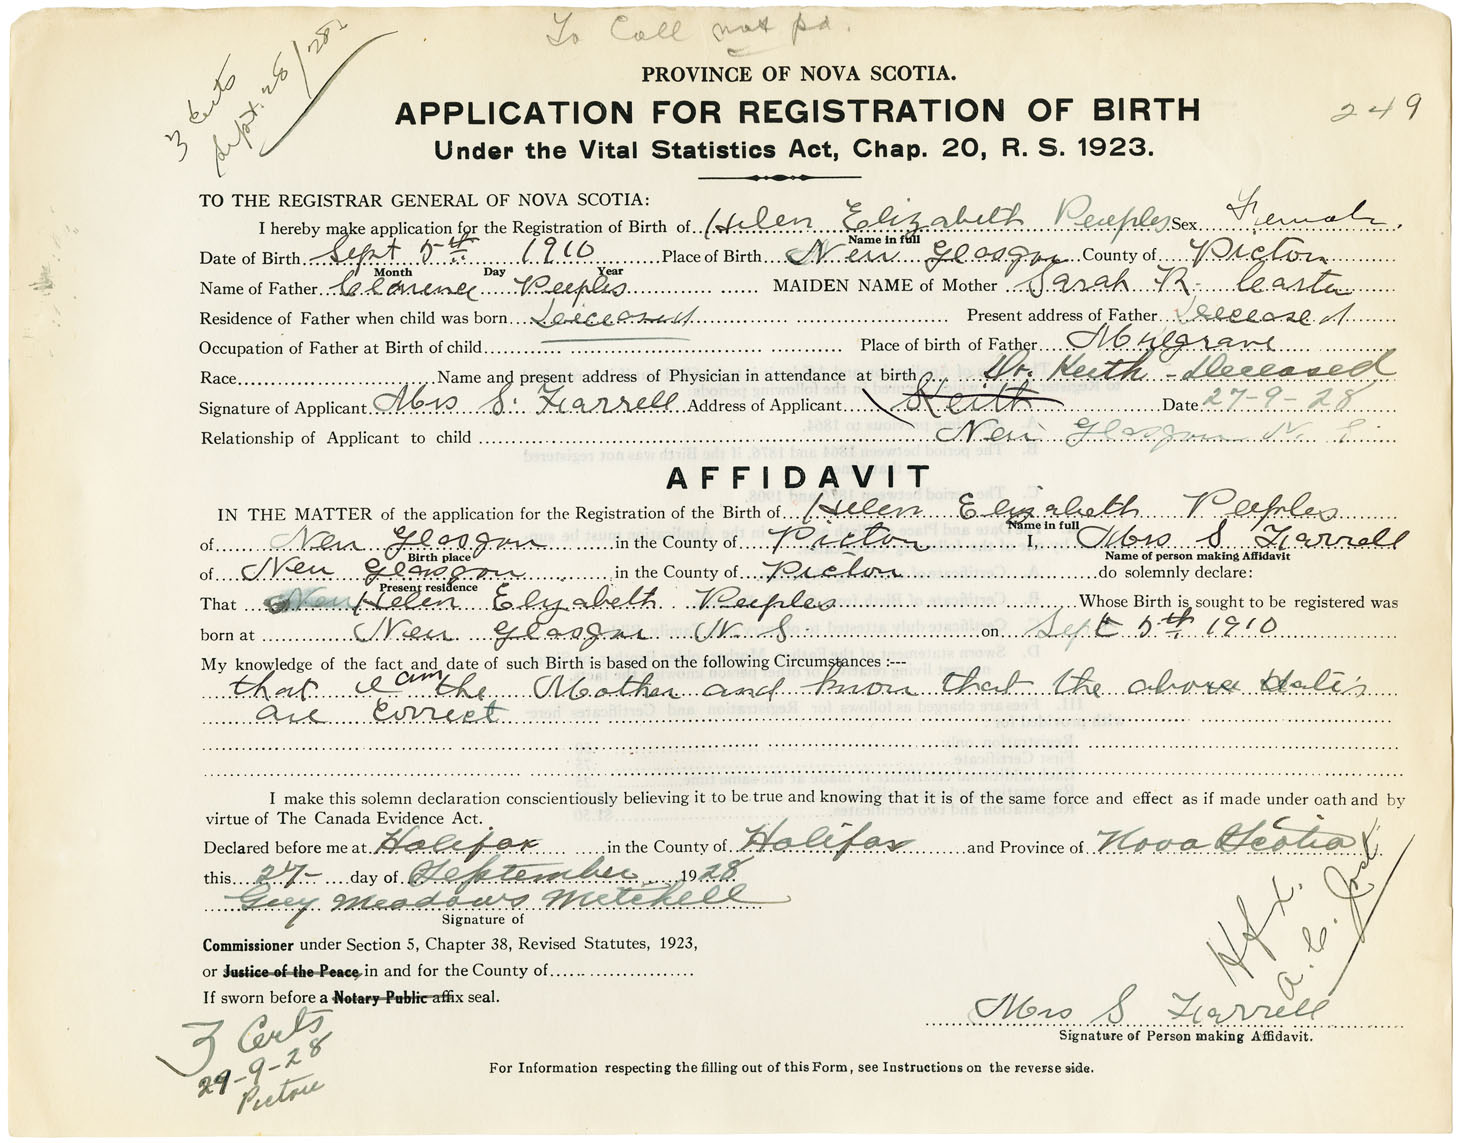 To Call not pd.
3 Certs
Sept. 28/28
249
PROVINCE OF NOVA SCOTIA.
APPLICATION FOR REGISTRATION OF BIRTH
Under the Vital Statistics Act, Chap. 20, R. S. 1923.
TO THE REGISTRAR GENERAL OF NOVA SCOTIA:
I hereby make application for the Registration of Birth of Helen Elizabeth Peeples Sex Female.
Name in full
Date of Birth Sept 5th 1910 Place of Birth New Glasgow County of Pictou
Month Day Year
Name of Father Clarence Peeples MAIDEN NAME of Mother Sarah R. Carter
Residence of Father when child was born Deceased Present address of Father Deceased
Occupation of Father at Birth of child Place of birth of Father Mulgrave
Race Name and present address of Physician in attendance at birth Dr. Keith - Deceased
Signature of Applicant Mrs S. Farrell Address of Applicant Keith Date 27-9-28
Relationship of Applicant to child New Glasgow N. S.
AFFIDAVIT
IN THE MATTER of the application for the Registration of the Birth of Helen Elizabeth Peeples
Name in full
of New Glasgow in the County of Pictou I Mrs S Farrell
Birth place Name of person making Affidavit
of New Glasgow in the County of Pictou do solemnly declare:
Present residence
That New Helen Elyzabeth Peeples Whose Birth is sought to be registered was
born at New Glasgow N S on Sept 5th 1910
My knowledge of the fact and date of such Birth is based on the following Circumstances :---
that I am the Mother and know that the above dates
are correct
I make this solemn declaration conscientiously believing it to be true and knowing that it is of the same force and effect as if made under oath and by
virtue of The Canada Evidence Act.
Declared before me at Halifax in the County of Halifax and Province of Nova Scotia
this 27- day of September 1928
Guy Meadows Mitchell
Signature of
Commissioner under Section 5, Chapter 38, Revised Statutes, 1923,
or Justice of the Peace in and for the County of
If sworn before a Notary Public affix seal.
Hfx.
A. C.
Mrs S Farrell
Signature of Person making Affidavit.
3 Certs
29-9-28
Pictou
For Information respecting the filling out of this Form, see Instructions on the reverse side.